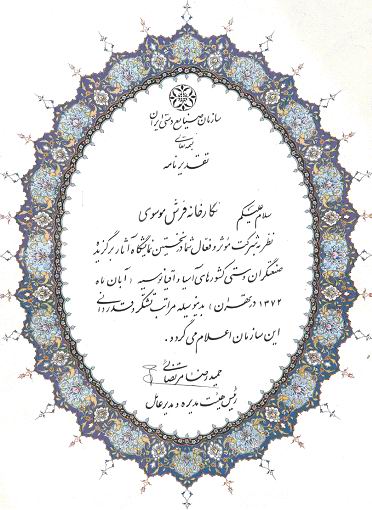 سازمان صنایع دستی ایران
بسمه تعالی
تقدیرنامه
کارخانه فرش موسوی
سلام علیکم
نظر به شرکت مؤثر و فعال شما در نخستین نمایشگاه آثار برگزیده
صنعتگران دستی کشورهای آسیا و اقیانوسیه (آبان ماه
۱۳۷۲ در تهران) بدینوسیله مراتب تشکر و قدردانی
این سازمان اعلام می گردد.
حمید رضا مرتضائی
رئیس هیئت مدیره و مدیرعامل